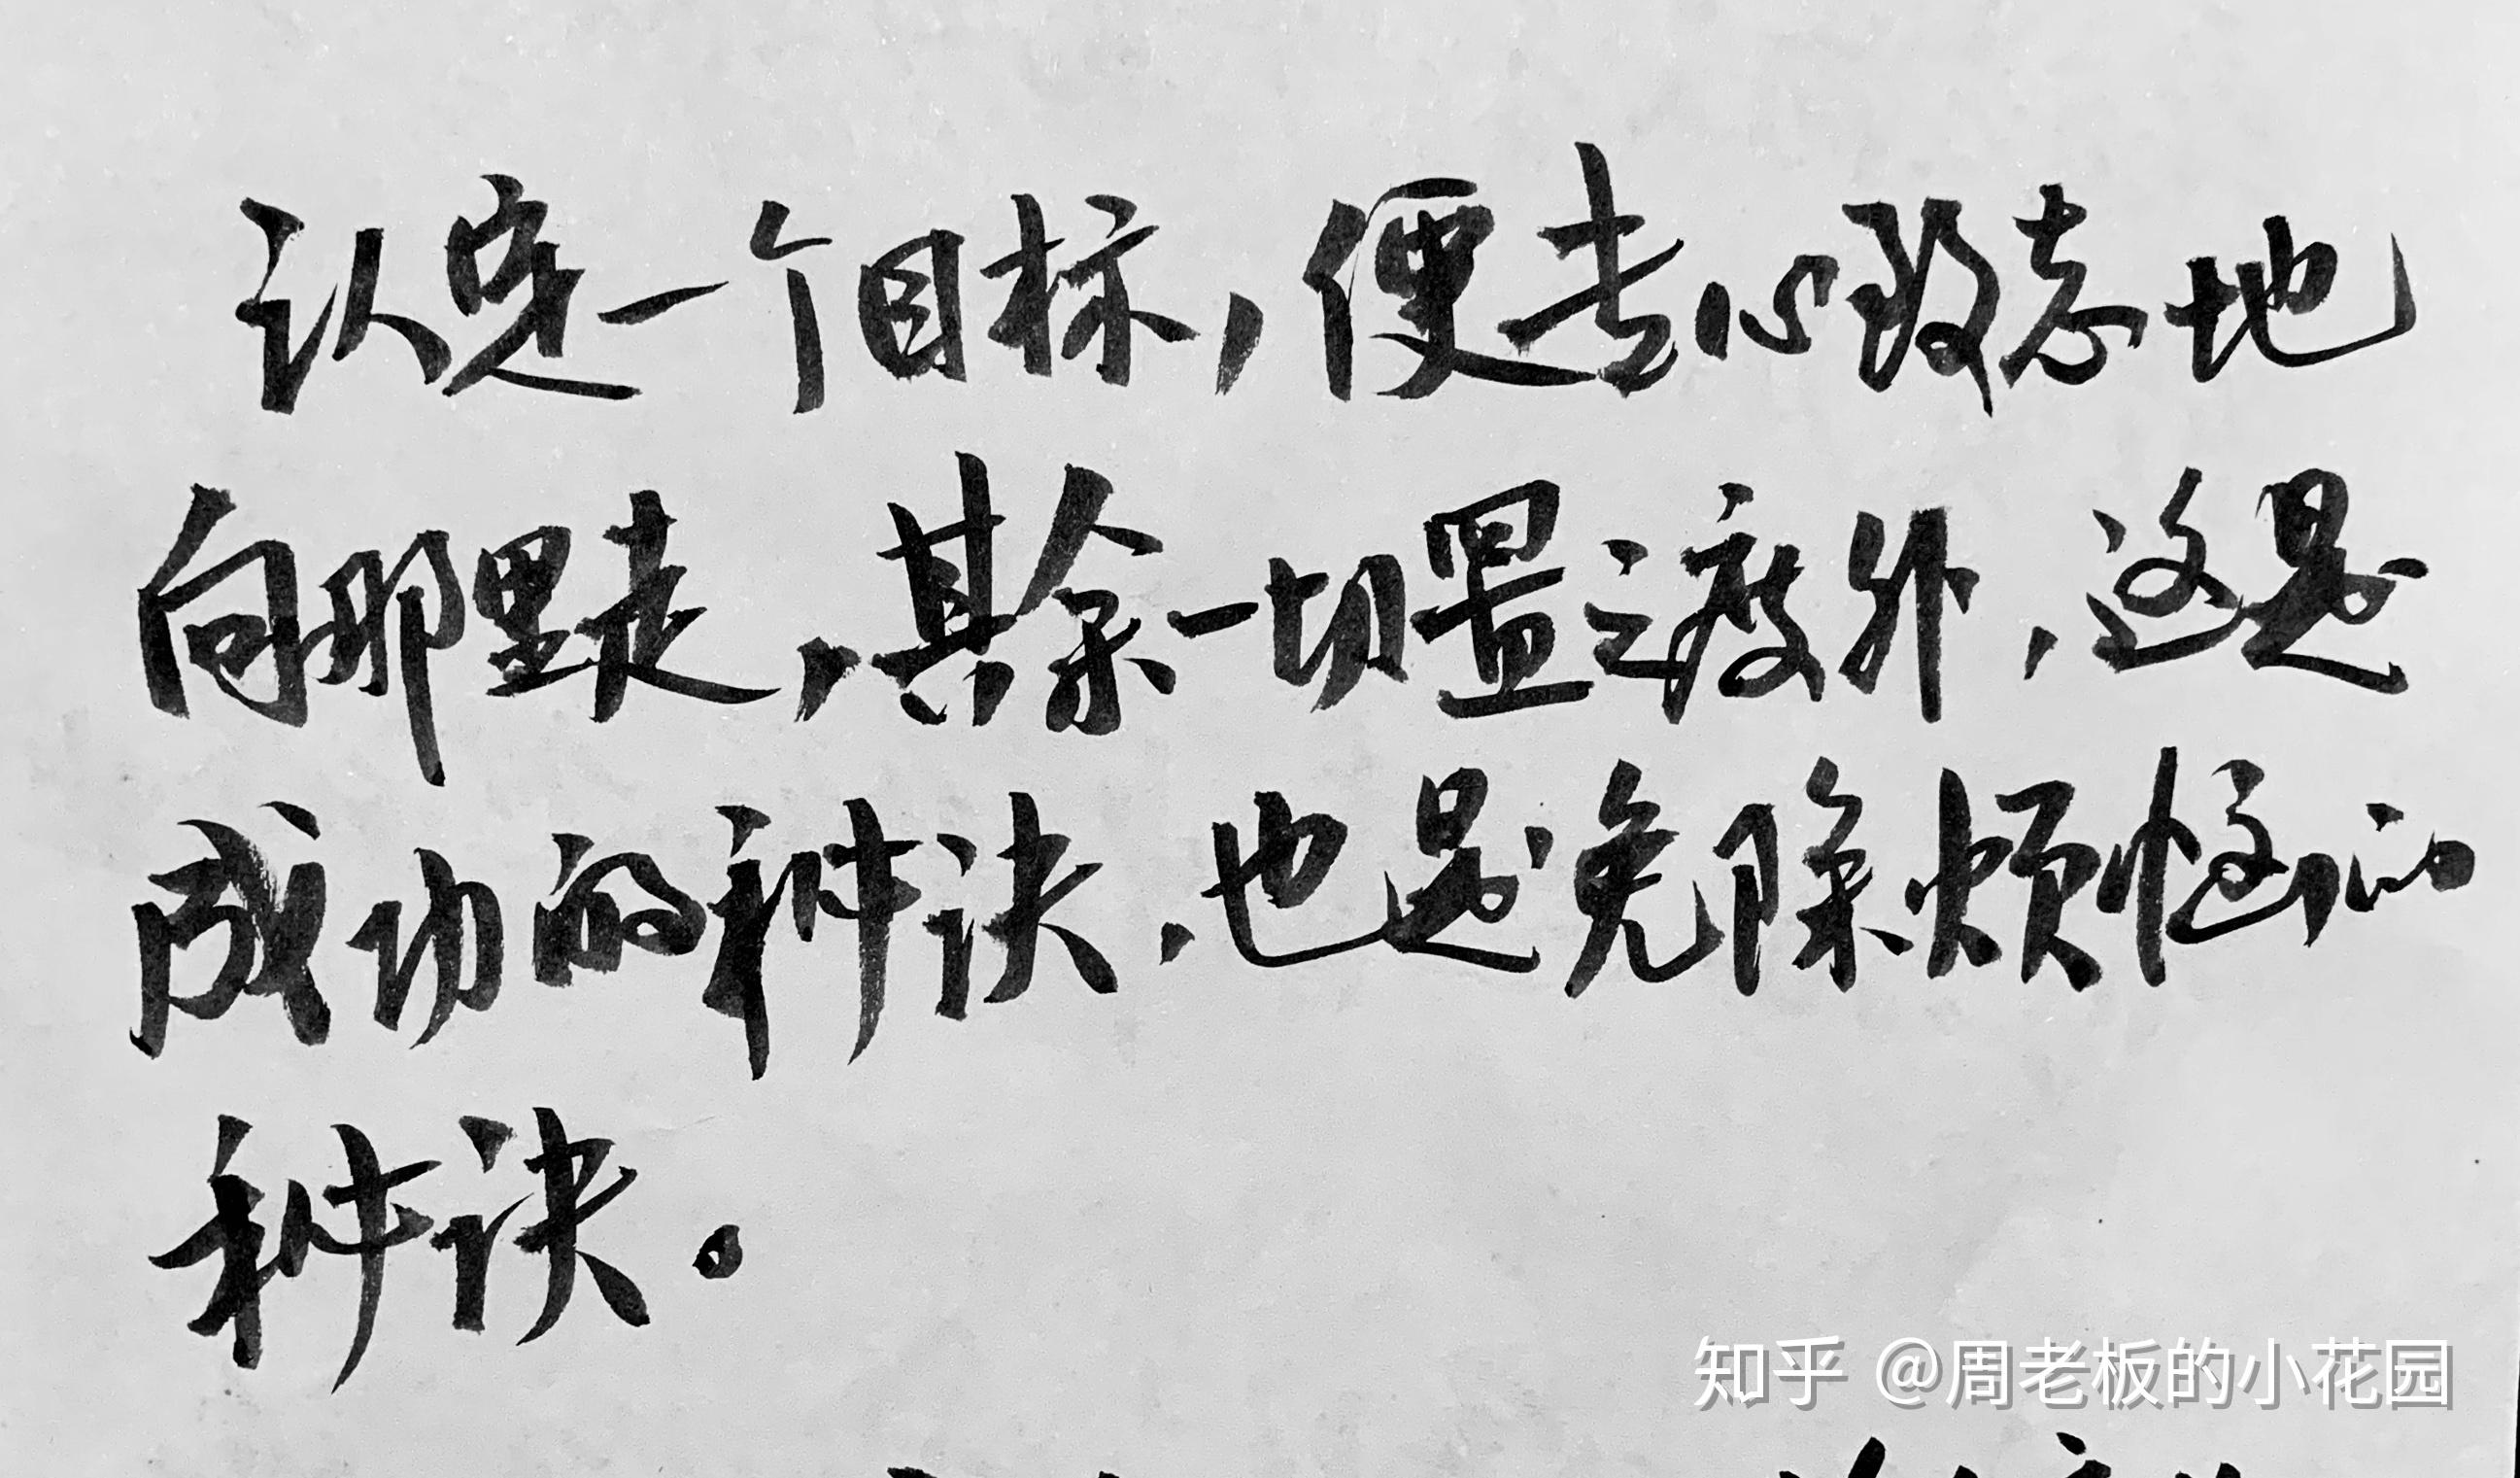 认定一个目标，便专心致志地
向那里走，其余一切置之度外，这是
成功的秘诀，也是免除烦恼的
秘诀。
知乎 @周老板的小花园